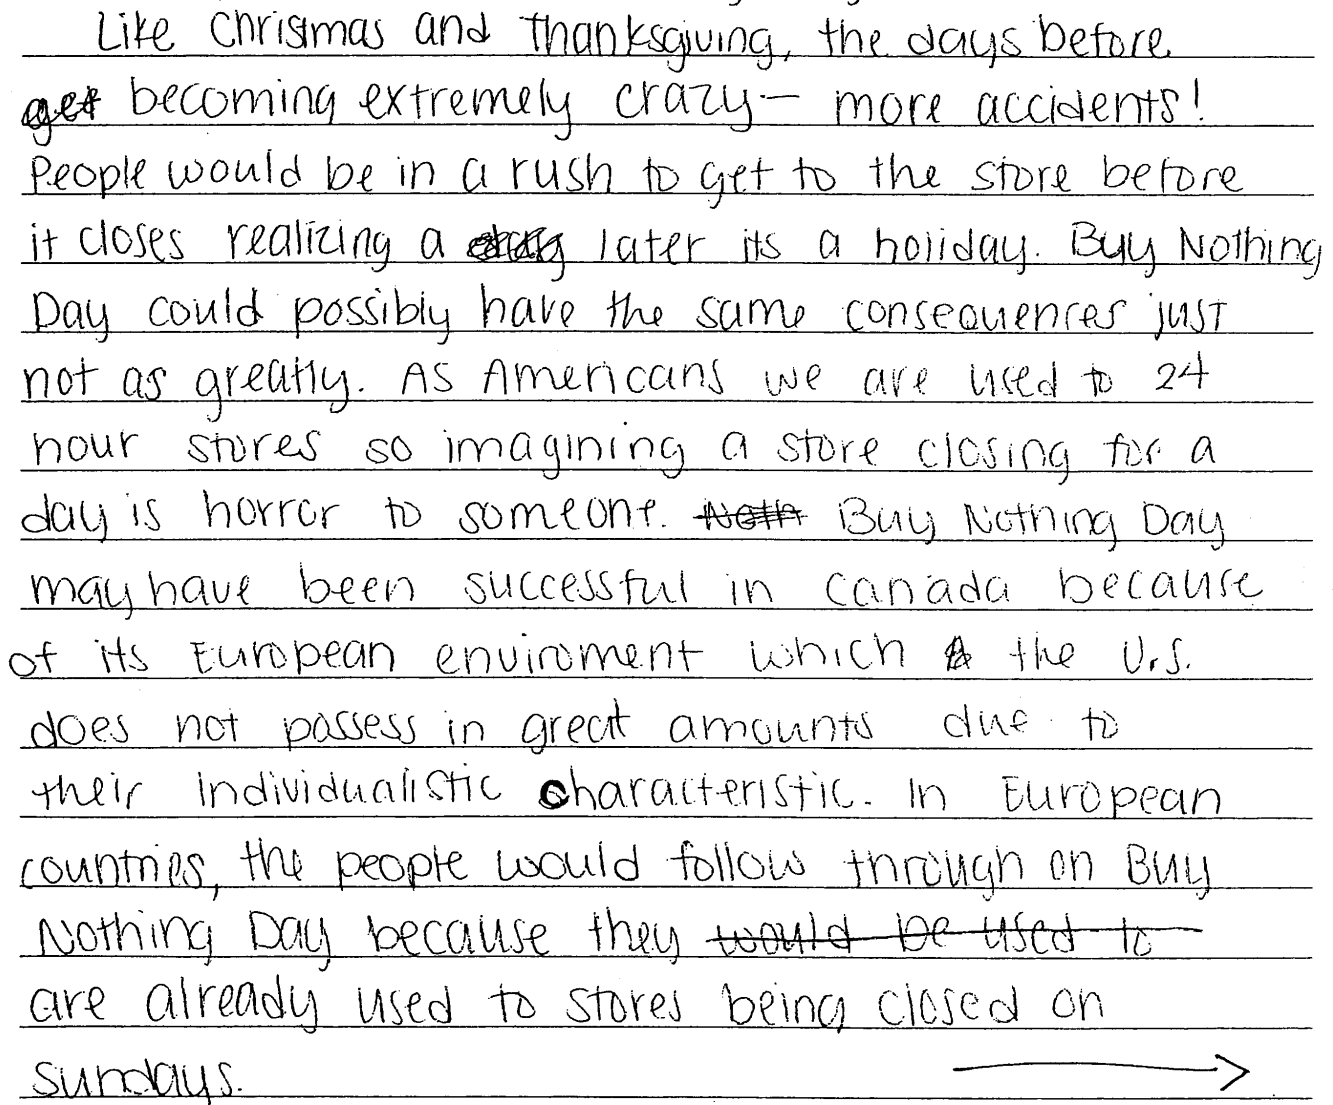 Like Chrismas and Thanksgiving, the days before
get becoming extremely crazy— more accidents!
People would be in a rush to get to the store before
it closes realizing a later its a holiday. Buy Nothing
Day could possibly have the same consequences just
not as greatly. As Americans we are used to 24
hour stores so imagining a store closing for a
day is horror to someone. Noth Buy Nothing Day
may have been successful in Canada because
of its European enviroment which the U.S.
does not possess in great amounts due to
their individualistic characteristic. In European
countries, the people would follow through on Buy
Nothing Day because they would be used to
are already used to stores being closed on
Sundays.